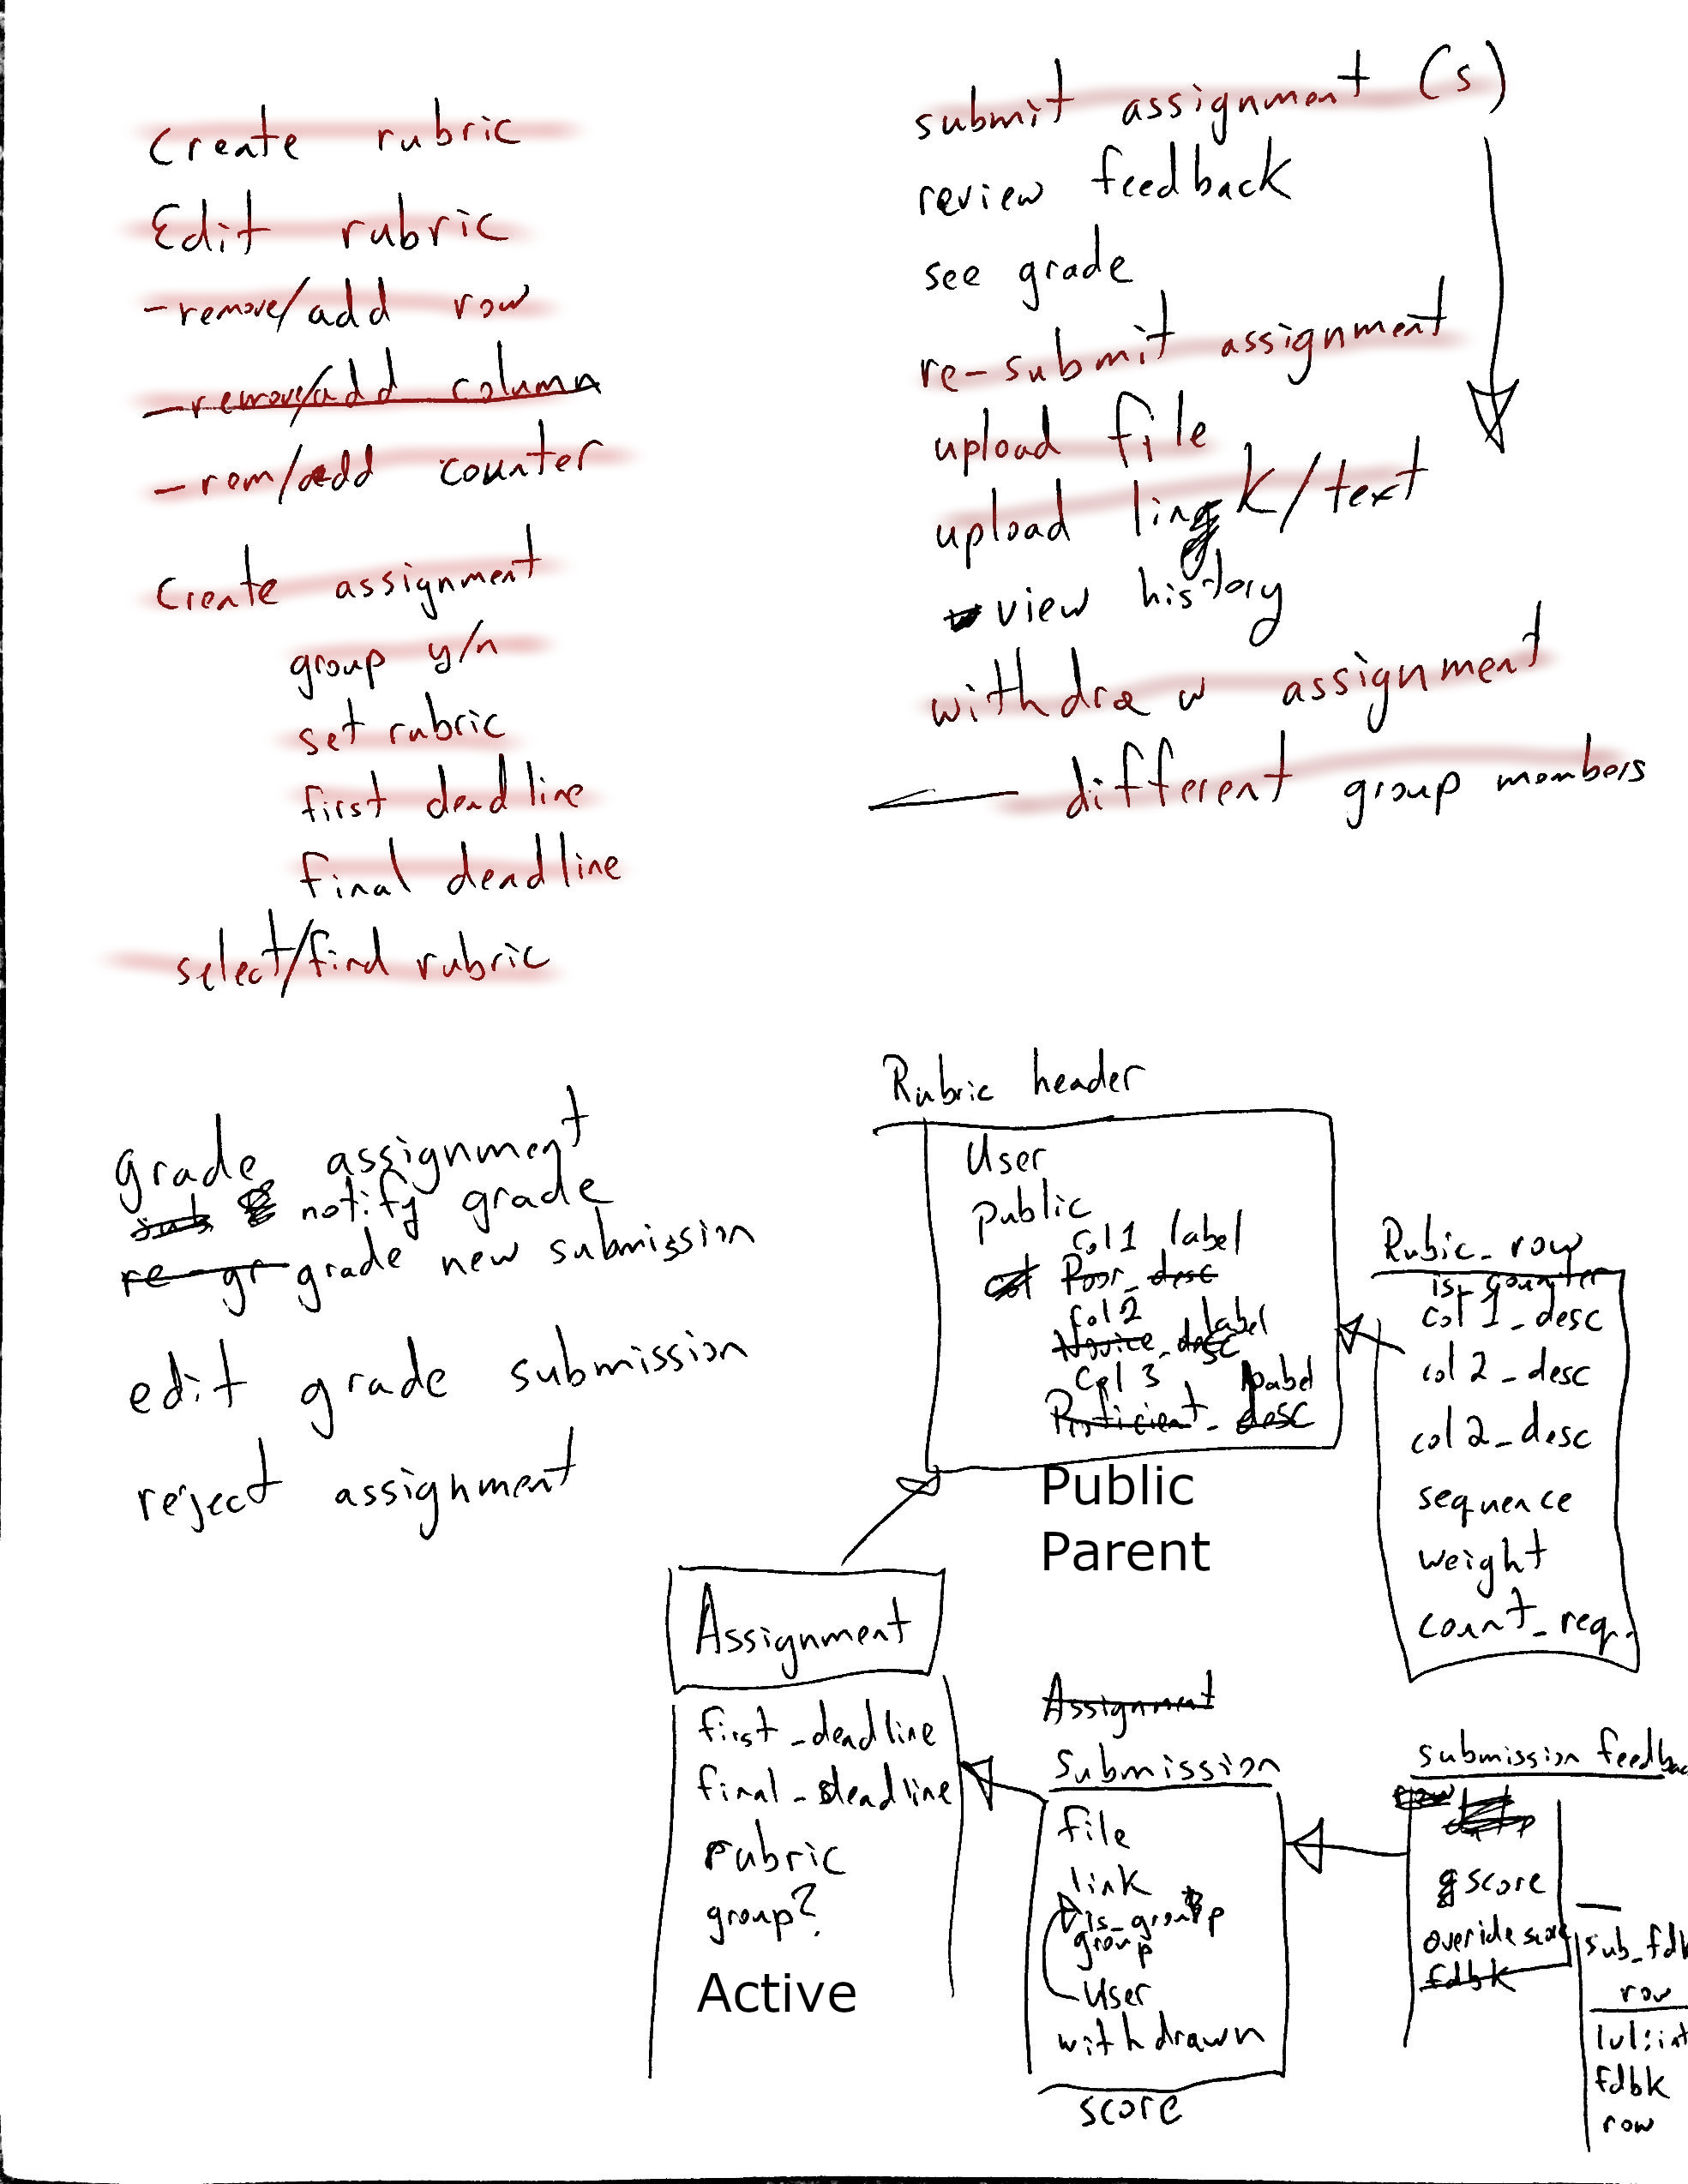 Create rubric
Edit rubric
-remove/add row
-remove/add column
-rem/add counter
Create assignment
group y/n
set rubric
first deadline
final deadline
select/find rubric
submit assignment (s)
review feedback
see grade
re-submit assignment
upload file
upload link/text
view history
withdraw assignment
different group members
grade assignment
sub notify grade
re-gr grade new submission
edit grade submission
reject assignment
Rubric header
User
Public
col1 label
col Poor_desc
col2 label
Novice_desc
Col 3 label
Proficient_desc
Public
Parent
Rubic_row
is_counter
col 1_desc
col 2_desc
col 2_desc
sequence
weight
count_req.
Assignment
first_deadline
final_deadline
rubric
group?
Active
Assignment
Submission
file
link
is_group
group
User
withdrawn
score
submission feedbac
row
score
override score
fdbk
sub_fdb
row
lvl:int
fdbk
row